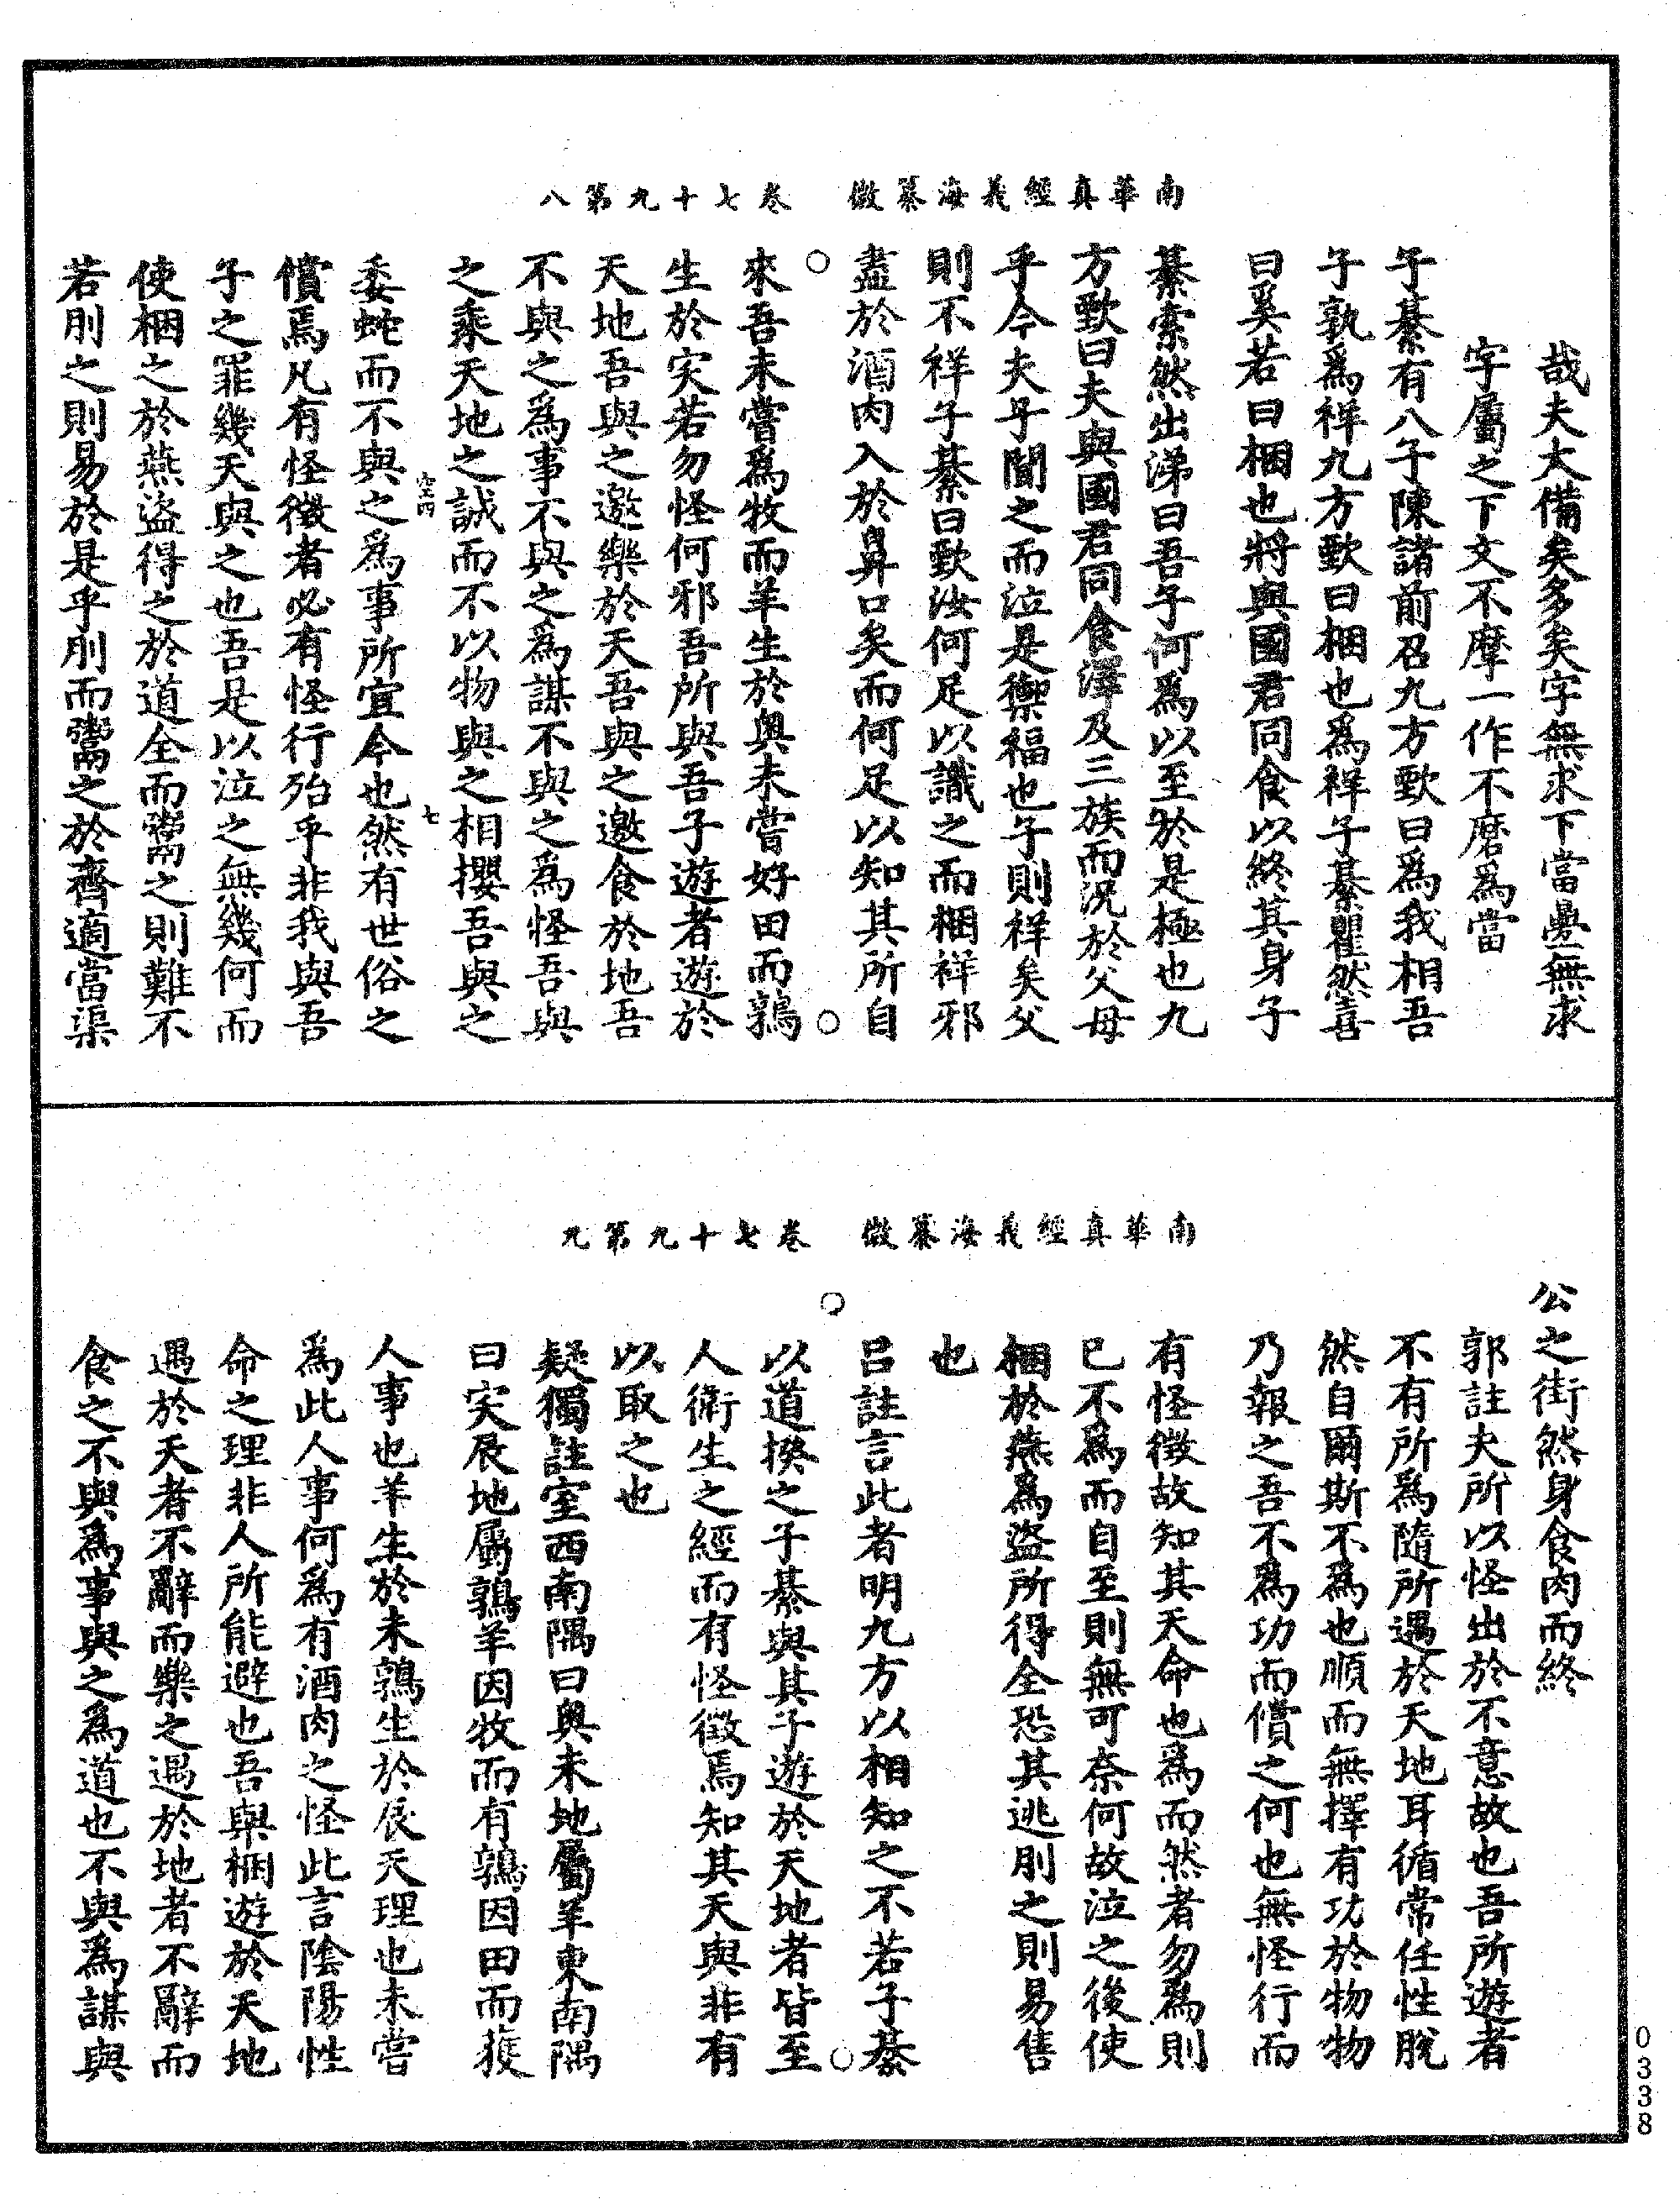 南華真經義海纂微　卷七十九第八
哉夫大備矣多矣字無求下當疊無求
字屬之下文不摩一作不磨爲當
子綦有八子陳諸前召九方歅曰爲我相吾
子孰爲祥九方歅曰梱也爲祥子綦瞿然喜
曰奚若曰梱也將與國君同食以終其身子
綦索然出涕曰吾子何爲以至於是極也九
方歅曰夫與國君同食澤及三族而況於父母
乎今夫子聞之而泣是禦福也子則祥矣父
則不祥子綦曰歅汝何足以識之而梱祥邪
盡於酒肉入於鼻口矣而何足以知其所自
來吾未嘗爲牧而羊生於奧未嘗好田而鶉
生於宎若勿怪何邪吾所與吾子遊者遊於
天地吾與之邀樂於天吾與之邀食於地吾
不與之爲事不與之爲謀不與之爲怪吾與
之乘天地之誠而不以物與之相攖吾與之
委蛇而不與之爲事所宜今也然有世俗之
償焉凡有怪徵者必有怪行殆乎非我與吾
子之罪幾天與之也吾是以泣之無幾何而
使梱之於燕盜得之於道全而鬻之則難不
若刖之則易於是乎刖而鬻之於齊適當渠
南華真經義海纂微　卷七十九第九
公之街然身食肉而終
郭註夫所以怪出於不意故也吾所遊者
不有所爲隨所遇於天地耳循常任性脫
然自爾斯不爲也順而無擇有功於物物
乃報之吾不爲功而償之何也無怪行而
有怪徵故知其天命也爲而然者勿爲則
已不爲而自至則無可奈何故泣之後使
梱於燕爲盜所得全恐其逃刖之則易售
也
呂註言此者明九方以相知之不若子綦
以道揆之子綦與其子遊於天地者皆至
人衛生之經而有怪徵焉知其天與非有
以取之也
疑獨註室西南隅曰奧未地屬羊東南隅
曰宎辰地屬鶉羊因牧而有鶉因田而獲
人事也羊生於未鶉生於辰天理也未嘗
爲此人事何爲有酒肉之怪此言陰陽性
命之理非人所能避也吾與梱遊於天地
遇於天者不辭而樂之遇於地者不辭而
食之不與爲事與之爲道也不與爲謀與
0338